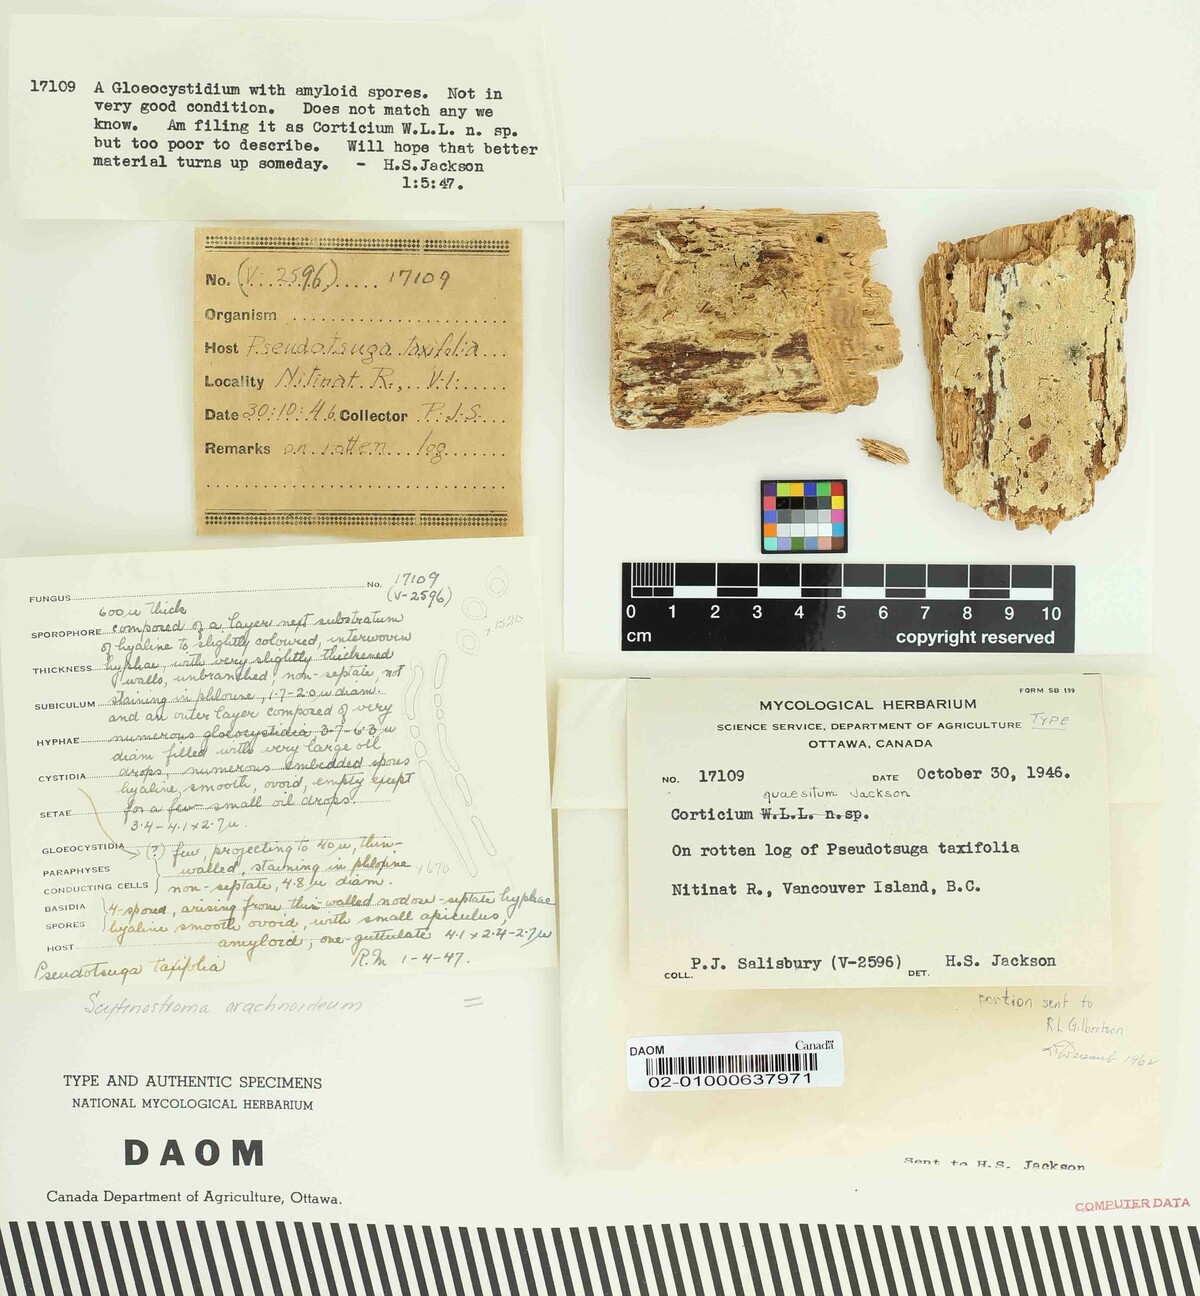 17109 A Gloeocystidium with amyloid spores. Not in
very good condition. Does not match any we
know. Am filing it as Corticium W.L.L. n. sp.
but too poor to describe. Will hope that better
material turns up someday. - H.S.Jackson
1:5:47.
No. (V. 2596) 17109
Organism
Host Pseudotsuga taxifolia
Locality Nitinat R., V.I.
Date 30:10:46 Collector P.J.S.
Remarks on rotten log
FUNGUS No. 17109
(V-2596)
600 u thick
SPOROPHORE composed of a layer next substratum
of hyaline to slightly coloured, interwoven
THICKNESS hyphae, with very slightly thickened
walls, unbranched, non-septate, not
SUBICULUM staining in phloxine, 1.7-2.0 u diam.
and an outer layer composed of very
HYPHAE numerous gloeocystidia 3.7-6.3 u
diam filled with very large oil
CYSTIDIA drops, numerous embedded spores
hyaline, smooth, ovoid, empty except
SETAE for a few small oil drops.
3.4-4.1 x 2.7 u.
GLOEOCYSTIDIA (?) few, projecting to 40 u, thin-
PARAPHYSES walled, staining in phloxine
CONDUCTING CELLS non-septate, 4.8 u diam.
BASIDIA 4-spored, arising from thin-walled nodose-septate hyphae
SPORES hyaline smooth ovoid, with small apiculus,
HOST amyloid, one-guttulate 4.1 x 2.4-2.7 u
Pseudotsuga taxifolia R.M 1-4-47.
x1520
x670
Scytinostroma arachnoideum =
TYPE AND AUTHENTIC SPECIMENS
NATIONAL MYCOLOGICAL HERBARIUM
DAOM
Canada Department of Agriculture, Ottawa.
0 1 2 3 4 5 6 7 8 9 10
cm copyright reserved
FORM SB 199
MYCOLOGICAL HERBARIUM
SCIENCE SERVICE, DEPARTMENT OF AGRICULTURE TYPE
OTTAWA, CANADA
NO. 17109 DATE October 30, 1946.
quaesitum Jackson
Corticium W.L.L. n.sp.
On rotten log of Pseudotsuga taxifolia
Nitinat R., Vancouver Island, B.C.
COLL. P.J. Salisbury (V-2596) DET. H.S. Jackson
portion sent to
R L Gilbertson
1962
DAOM Canada
02-01000637971
Sent to H.S. Jackson
COMPUTER DATA